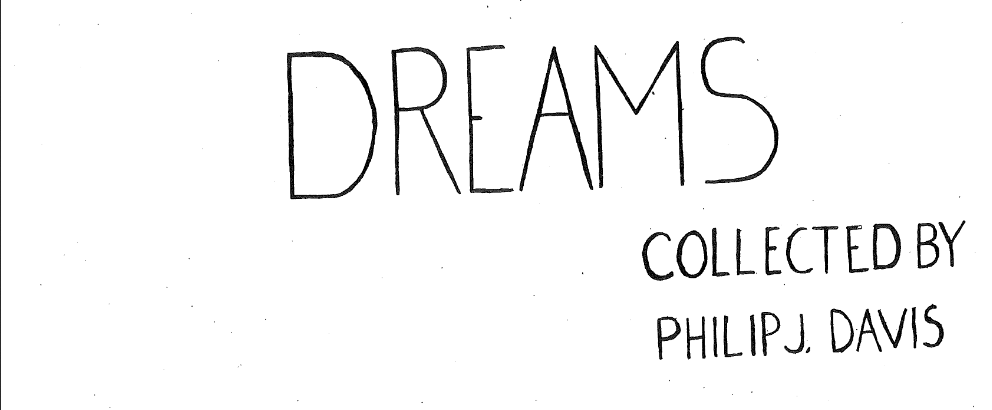 DREAMS
COLLECTED BY
PHILIP J. DAVIS